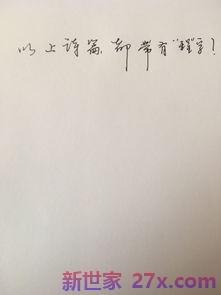 以上诗篇,都带有“瑾”字!
新世家 27x.com